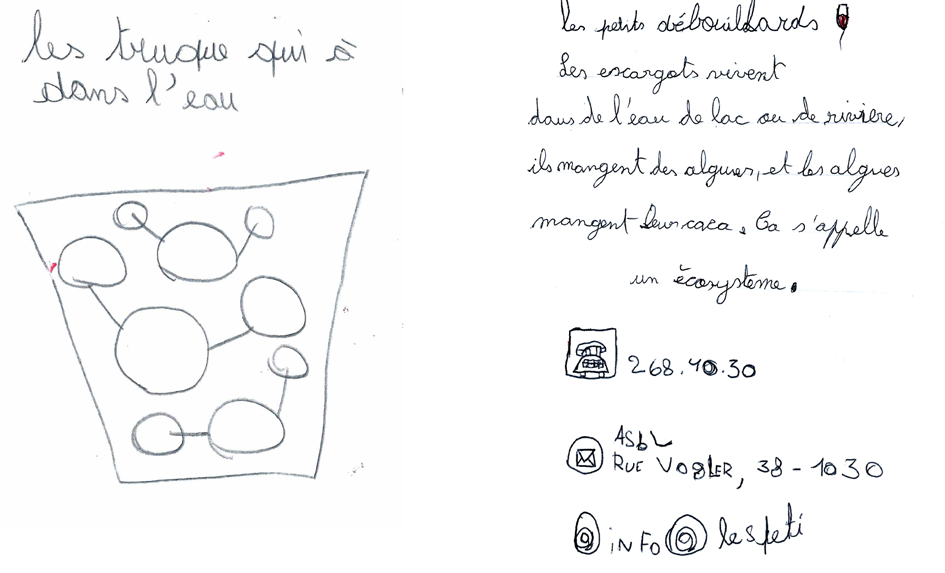 les truque qui à
dans l'eau
Les petits débouillards
Les escargots vivent
dans de l'eau de lac ou de rivière,
ils mangent des algues, et les algues
mangent leur caca. Ca s'appelle
un écosystème.
268.40.30
ASbL
RUE VOGLER, 38 - 1030
@ iNFO @ lespeti